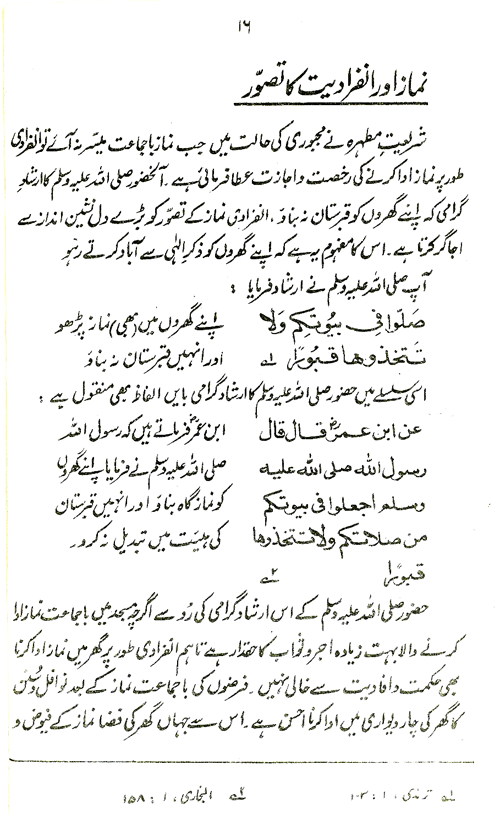 ۱۶
نماز اور انفرادیت کا تصوّر
شریعتِ مطہرہ نے مجبوری کی حالت میں جب نماز باجماعت میسّر نہ آئے تو انفرادی
طور پر نماز ادا کرنے کی رخصت و اجازت عطا فرمائی ہے۔ آنحضور صلی اللہ علیہ وسلم کا ارشادِ
گرامی کہ اپنے گھروں کو قبرستان نہ بناؤ، انفرادی نماز کے تصوّر کو بڑے دل نشین انداز سے
اجاگر کرتا ہے۔ اس کا مفہوم یہ ہے کہ اپنے گھروں کو ذکرِ الٰہی سے آباد کرتے رہو
آپ صلی اللہ علیہ وسلم نے ارشاد فرمایا :
صلوا فی بیوتکم ولا اپنے گھروں میں (بھی) نماز پڑھو
تتخذوھا قبورًا ؎۱ اور انہیں قبرستان نہ بناؤ
اسی سلسلے میں حضور صلی اللہ علیہ وسلم کا ارشادِ گرامی بایں الفاظ بھی منقول ہے :
عن ابن عمرؓ قال قال ابن عمرؓ فرماتے ہیں کہ رسول اللہ
رسول اللہ صلی اللہ علیہ صلی اللہ علیہ وسلم نے فرمایا اپنے گھروں
وسلم اجعلوا فی بیوتکم کو نماز گاہ بناؤ اور انہیں قبرستان
من صلاتکم ولا تتخذوھا کی ہیئت میں تبدیل نہ کرو۔
قبورًا ؎۲
حضور صلی اللہ علیہ وسلم کے اس ارشادِ گرامی کی رُو سے اگرچہ مسجد میں باجماعت نماز ادا
کرنے والا بہت زیادہ اجر و ثواب کا حقدار ہے تاہم انفرادی طور پر گھر میں نماز ادا کرنا
بھی حکمت و افادیت سے خالی نہیں۔ فرضوں کی باجماعت نماز کے بعد نوافل و سُنن
کا گھر کی چار دیواری میں ادا کرنا احسن ہے۔ اس سے جہاں گھر کی فضا نماز کے فیوض و
؎۱ ترمذی، ۱ : ۱۰۳ ؎۲ البخاری، ۱ : ۱۵۸